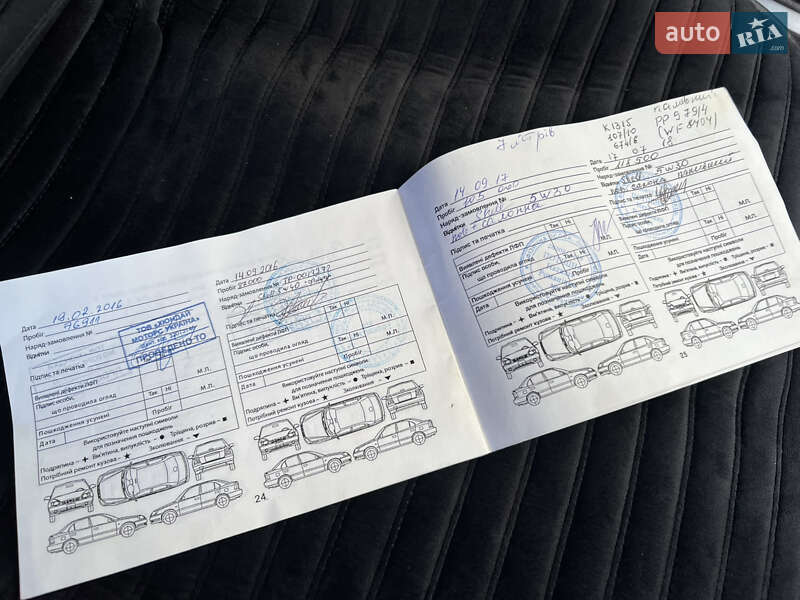 auto RIA.com
Дата 19.02 2016
Пробіг 76911
Наряд-замовлення №
Відмітки
ТОВ «ХЮНДАЙ
МОТОРС УКРАЇНА»
ПРОВЕДЕНО ТО
Підпис та печатка
М.П.
Виявлені дефекти ЛФП Так Ні
Підпис особи,
що проводила огляд М.П.
Пошкодження усунені Пробіг
Дата Використовуйте наступні символи
для позначення пошкоджень
Подряпина – + Вм'ятина, випуклість – ● Тріщина, розрив – ■
Потрібний ремонт кузова – ★ Сколювання – ▼
Дата 14.09 2016
Пробіг 87000
Наряд-замовлення №
Відмітки
Підпис та печатка
М.П.
Виявлені дефекти ЛФП Так Ні
Підпис особи,
що проводила огляд М.П.
Пошкодження усунені Пробіг
Дата Використовуйте наступні символи
для позначення пошкоджень
Подряпина – + Вм'ятина, випуклість – ● Тріщина, розрив – ■
Потрібний ремонт кузова – ★ Сколювання – ▼
24
7 літрів
Дата 14.09.17
Пробіг 105 000
Наряд-замовлення №
Відмітки Shell 5W30
Підпис та печатка
М.П.
Виявлені дефекти ЛФП Так Ні
Підпис особи,
що проводила огляд М.П.
Пошкодження усунені Пробіг
Дата Використовуйте наступні символи
для позначення пошкоджень
Подряпина – + Вм'ятина, випуклість – ● Тріщина, розрив – ■
Потрібний ремонт кузова – ★ Сколювання – ▼
K1315
107/10
674/6
PP 979/4
(WF8404)
Дата 17 07 18
Пробіг 118 500
Наряд-замовлення №
Відмітки Shell 5W30
Підпис та печатка
М.П.
Виявлені дефекти ЛФП Так Ні
Підпис особи,
що проводила огляд М.П.
Пошкодження усунені Пробіг
Дата Використовуйте наступні символи
для позначення пошкоджень
Подряпина – + Вм'ятина, випуклість – ● Тріщина, розрив – ■
Потрібний ремонт кузова – ★ Сколювання – ▼
25